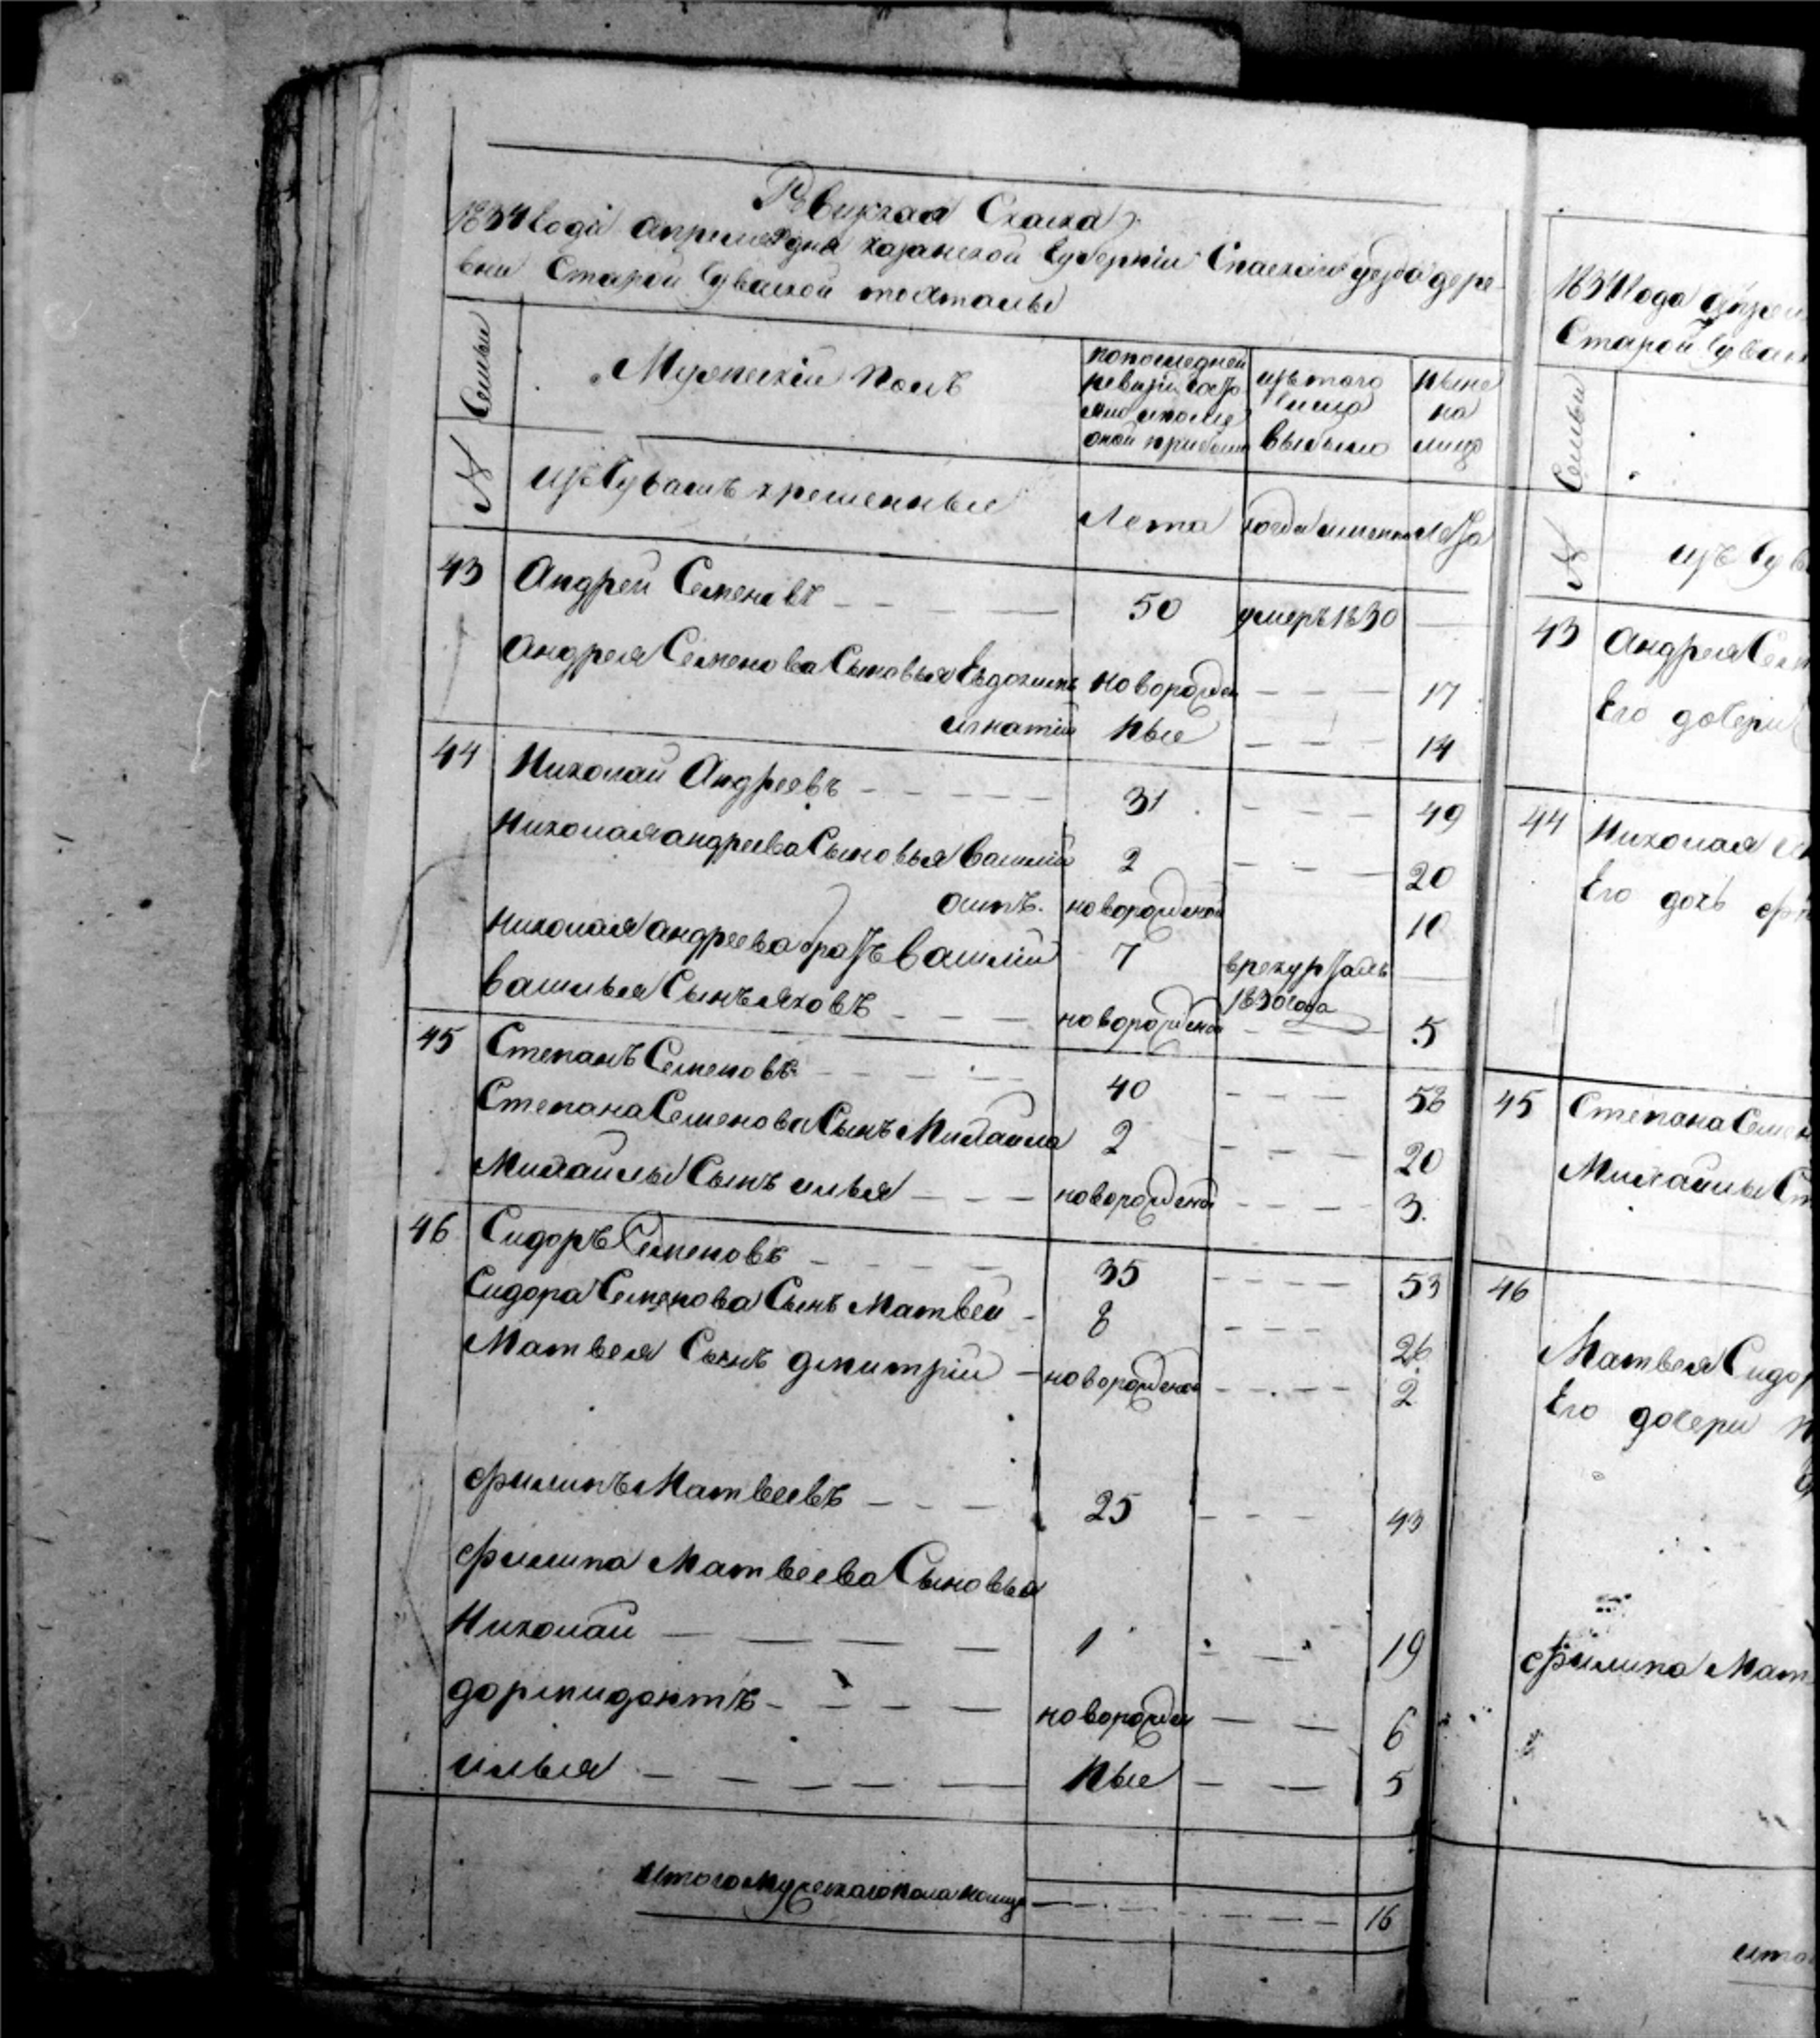 Ревизская Сказка
1834 года апреля дня казанской губернии Спаского уезда дере-
вни Старой Чувашской
Семьи
Мужеский полъ
по последней
ревизіи состо
яло и после
оной прибыло
изъ того
числа
выбыло
ныне
на
лицо
№
изъ Чувашъ крещенные
Лета
когда именно
Лета
43 Андрей Семеновъ 50 умеръ 1830
Андрея Семенова Сыновья Евдокимъ новорожден 17
игнатій ные 14
44 Николай Андреевъ 31 49
Николая андреева Сыновья василій 2 20
осипъ новорожденой 10
Николая андреева братъ василій 7 в рекруталъ
1830 года
василья Сынъ яковъ новорожденой 5
45 Степанъ Семеновъ 40 58
Степана Семенова Сынъ Михайла 2 20
Михайлы Сынъ илья новорожденой 3
46 Сидоръ Семеновъ 35 53
Сидора Семенова Сынъ Матвей 8 26
Матвея Сынъ дмитрій новорожденой 2
филипъ Матвеевъ 25 43
филипа Матвеева Сыновья
Николай 1 19
дормидонтъ новорожден 6
илья ные 5
Итого мужескаго пола налицо 16
1834 года апреля
Старой Чуваш
Семьи
№
изъ Чув
43 Андрея Сем
Его дочери
44 Николая
Его дочь
45 Степана Семен
Михайлы
46
Матвея Сидор
Его дочери
филипа Мат
ито